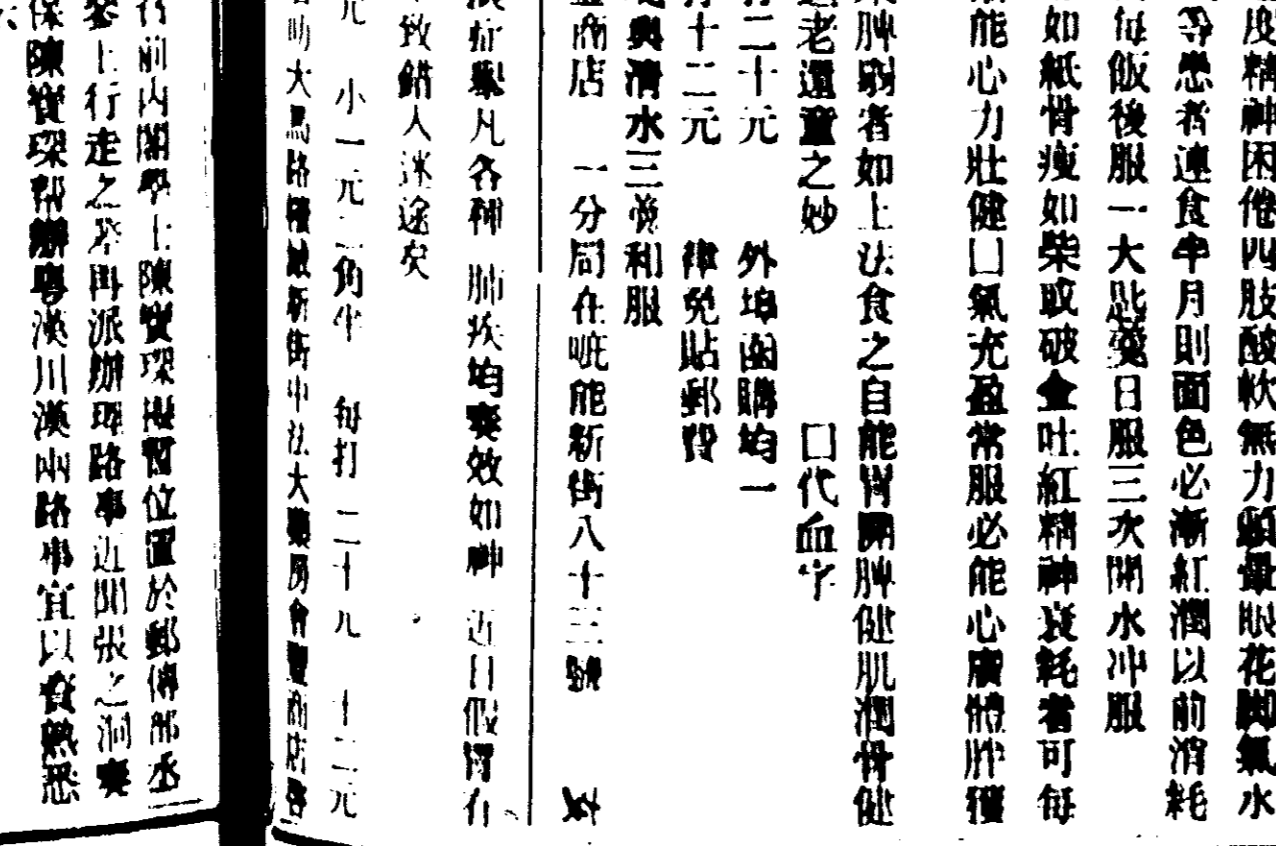 度精神困倦四肢酸軟無力頭暈眼花脚氣水
等患者連食半月則面色必漸紅潤以前消耗
每飯後服一大匙羹日服三次開水冲服
如紙骨瘦如柴或破金吐紅精神衰耗者可每
能心力壯健囗氣充盈常服必能心廣體胖獲
脾弱者如上法食之自能胃開脾健肌潤骨健
老還童之妙 囗代血字
二十元 外埠函購均一
十二元 律免貼郵費
與清水三羹和服
商店 一分局在呢能新街八十三號
症舉凡各種肺疾均奏效如神 近日假冒有
致錯入迷途矣
元 小一元二角半 每打 二十九 十二元
大馬路 新街中法大藥房會豐商店啓
前內閣學士陳寶琛擬暫位置於郵傳部丞
參上行走之榮再派辦理路事近聞張之洞奏
保陳寶琛帮辦粵漢川漢兩路事宜以資熟悉